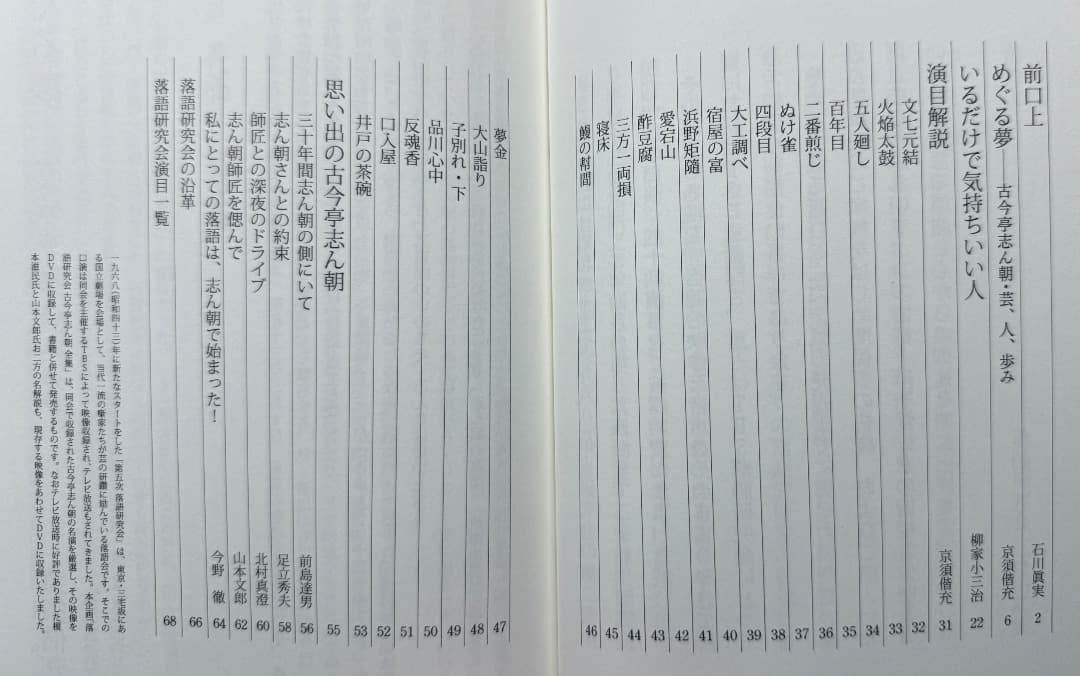 前口上 石川眞実 2
めぐる夢 ――古今亭志ん朝・芸、人、歩み 京須偕充 6
いるだけで気持ちいい人 柳家小三治 22
演目解説 京須偕充 31
文七元結 32
火焔太鼓 33
五人廻し 34
百年目 35
二番煎じ 36
ぬけ雀 37
四段目 38
大工調べ 39
宿屋の富 40
浜野矩随 41
愛宕山 42
酢豆腐 43
三方一両損 44
寝床 45
鰻の幇間 46
夢金 47
大山詣り 48
子別れ・下 49
品川心中 50
反魂香 51
口入屋 52
井戸の茶碗 53
思い出の古今亭志ん朝 55
三十年間志ん朝の側にいて 前島達男 56
志ん朝さんとの約束 足立秀夫 58
師匠との深夜のドライブ 北村真澄 60
志ん朝師匠を偲んで 山本文郎 62
私にとっての落語は、志ん朝で始まった! 今野 徹 64
落語研究会の沿革 66
落語研究会演目一覧 68
一九六八(昭和四十三)年に新たなスタートをした「第五次 落語研究会」は、東京・三宅坂にあ
る国立劇場を会場として、当代一流の噺家たちが芸の研鑽に励んでいる落語会です。そこでの
口演は同会を主催するTBSによって映像収録され、テレビ放送もされてきました。本企画「落
語研究会 古今亭志ん朝 全集」は、同会で収録された古今亭志ん朝の名演を厳選し、その映像を
DVDに収録して、書籍と併せて発売するものです。なおテレビ放送時に好評でありました榎
本滋民氏と山本文郎氏お二方の名解説も、現存する映像をあわせてDVDに収録いたしました。